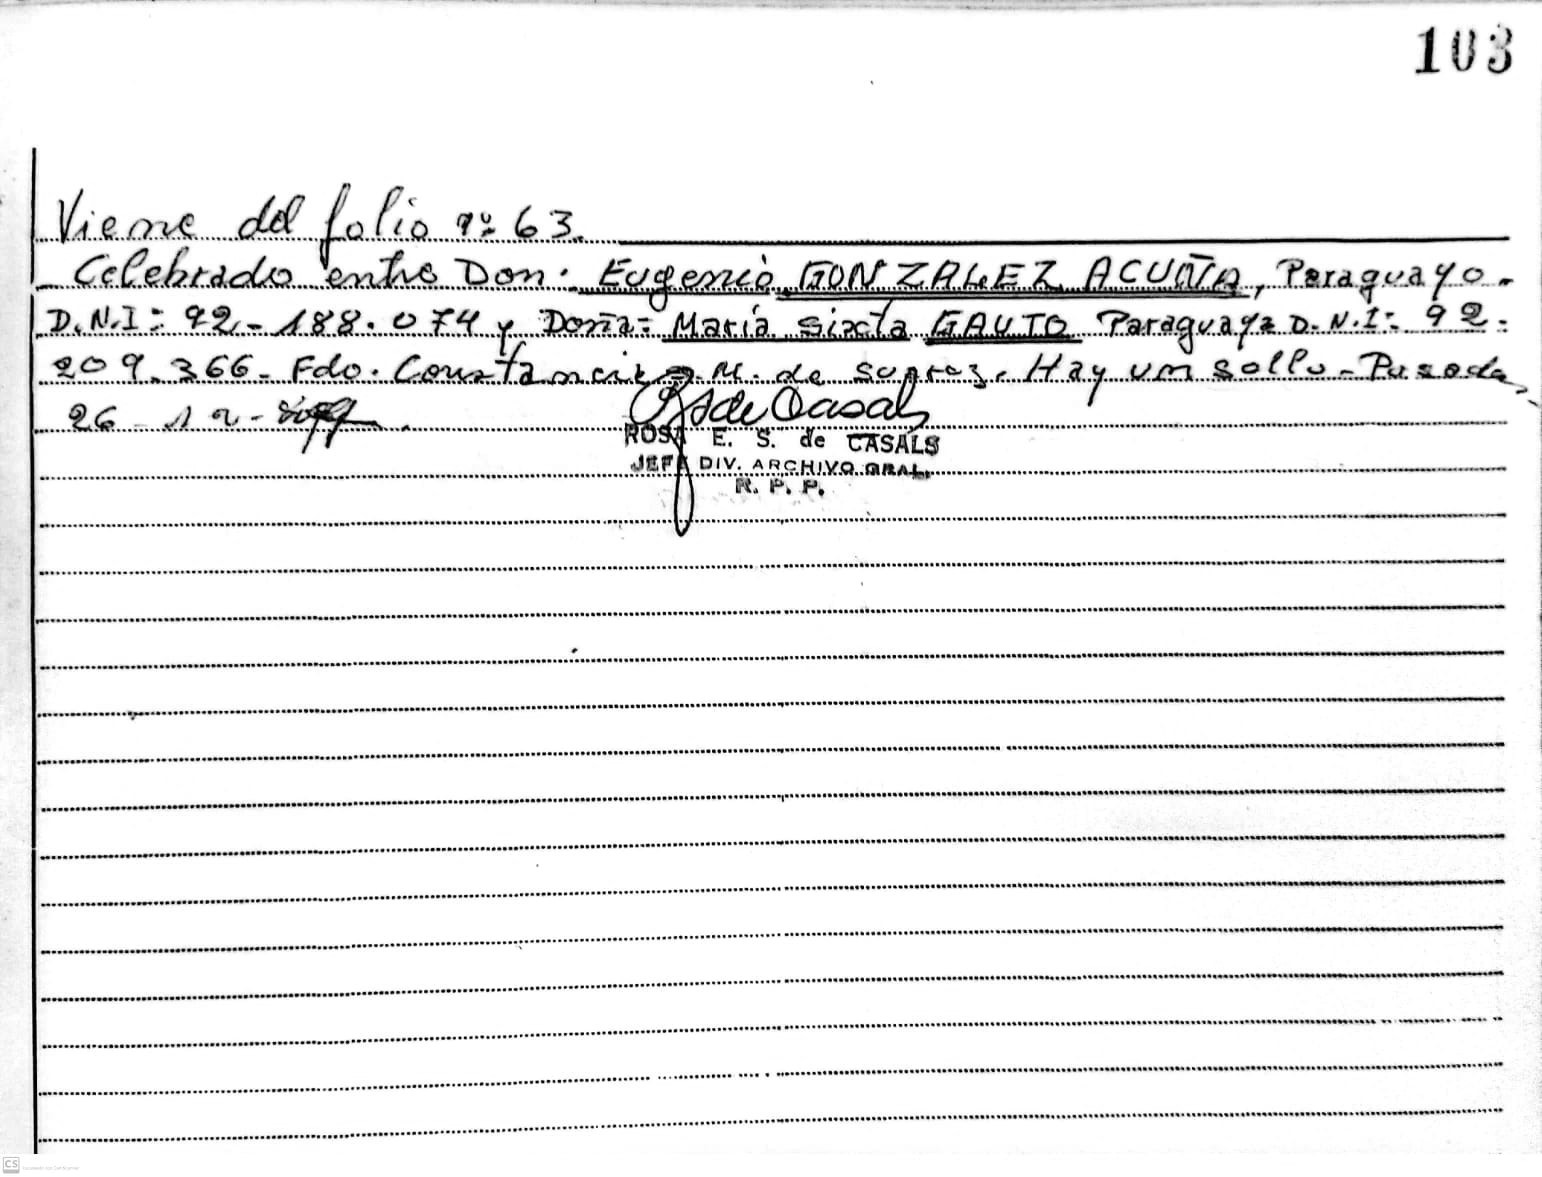 103
Viene del folio nº 63.
Celebrado entre Don: Eugenio GONZALEZ ACUÑA, Paraguayo.
D.N.I: 92-188.074 y Doña: María Sixta GAUTO Paraguaya D.N.I: 92.
209.366. Fdo. Constancia M. de Hay un sello - Posadas
26 - 12 -
ROSA E. S. de CASALS
JEFA DIV. ARCHIVO GRAL.
R. P. P.
CS